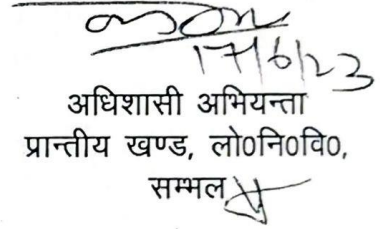 17/6/23
अधिशासी अभियन्ता
प्रान्तीय खण्ड, लो०नि०वि०,
सम्भल